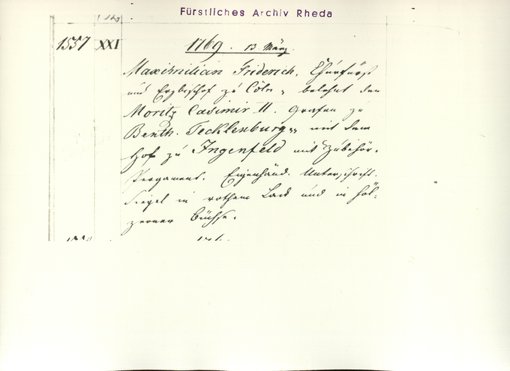 Fürstliches Archiv Rheda
1557 XXI 1769. 13 März
Maximilian Friderich, Churfürst
und Erzbischof zu Cöln, belehnt den
Moritz Casimir II. Grafen zu
Benth. Tecklenburg, mit dem
Hof zu Ingenfeld mit Zubehör.
Pergament. Eigenhänd. Unterschrift.
Siegel in rothem Lack und in höl-
zerner Büchse.